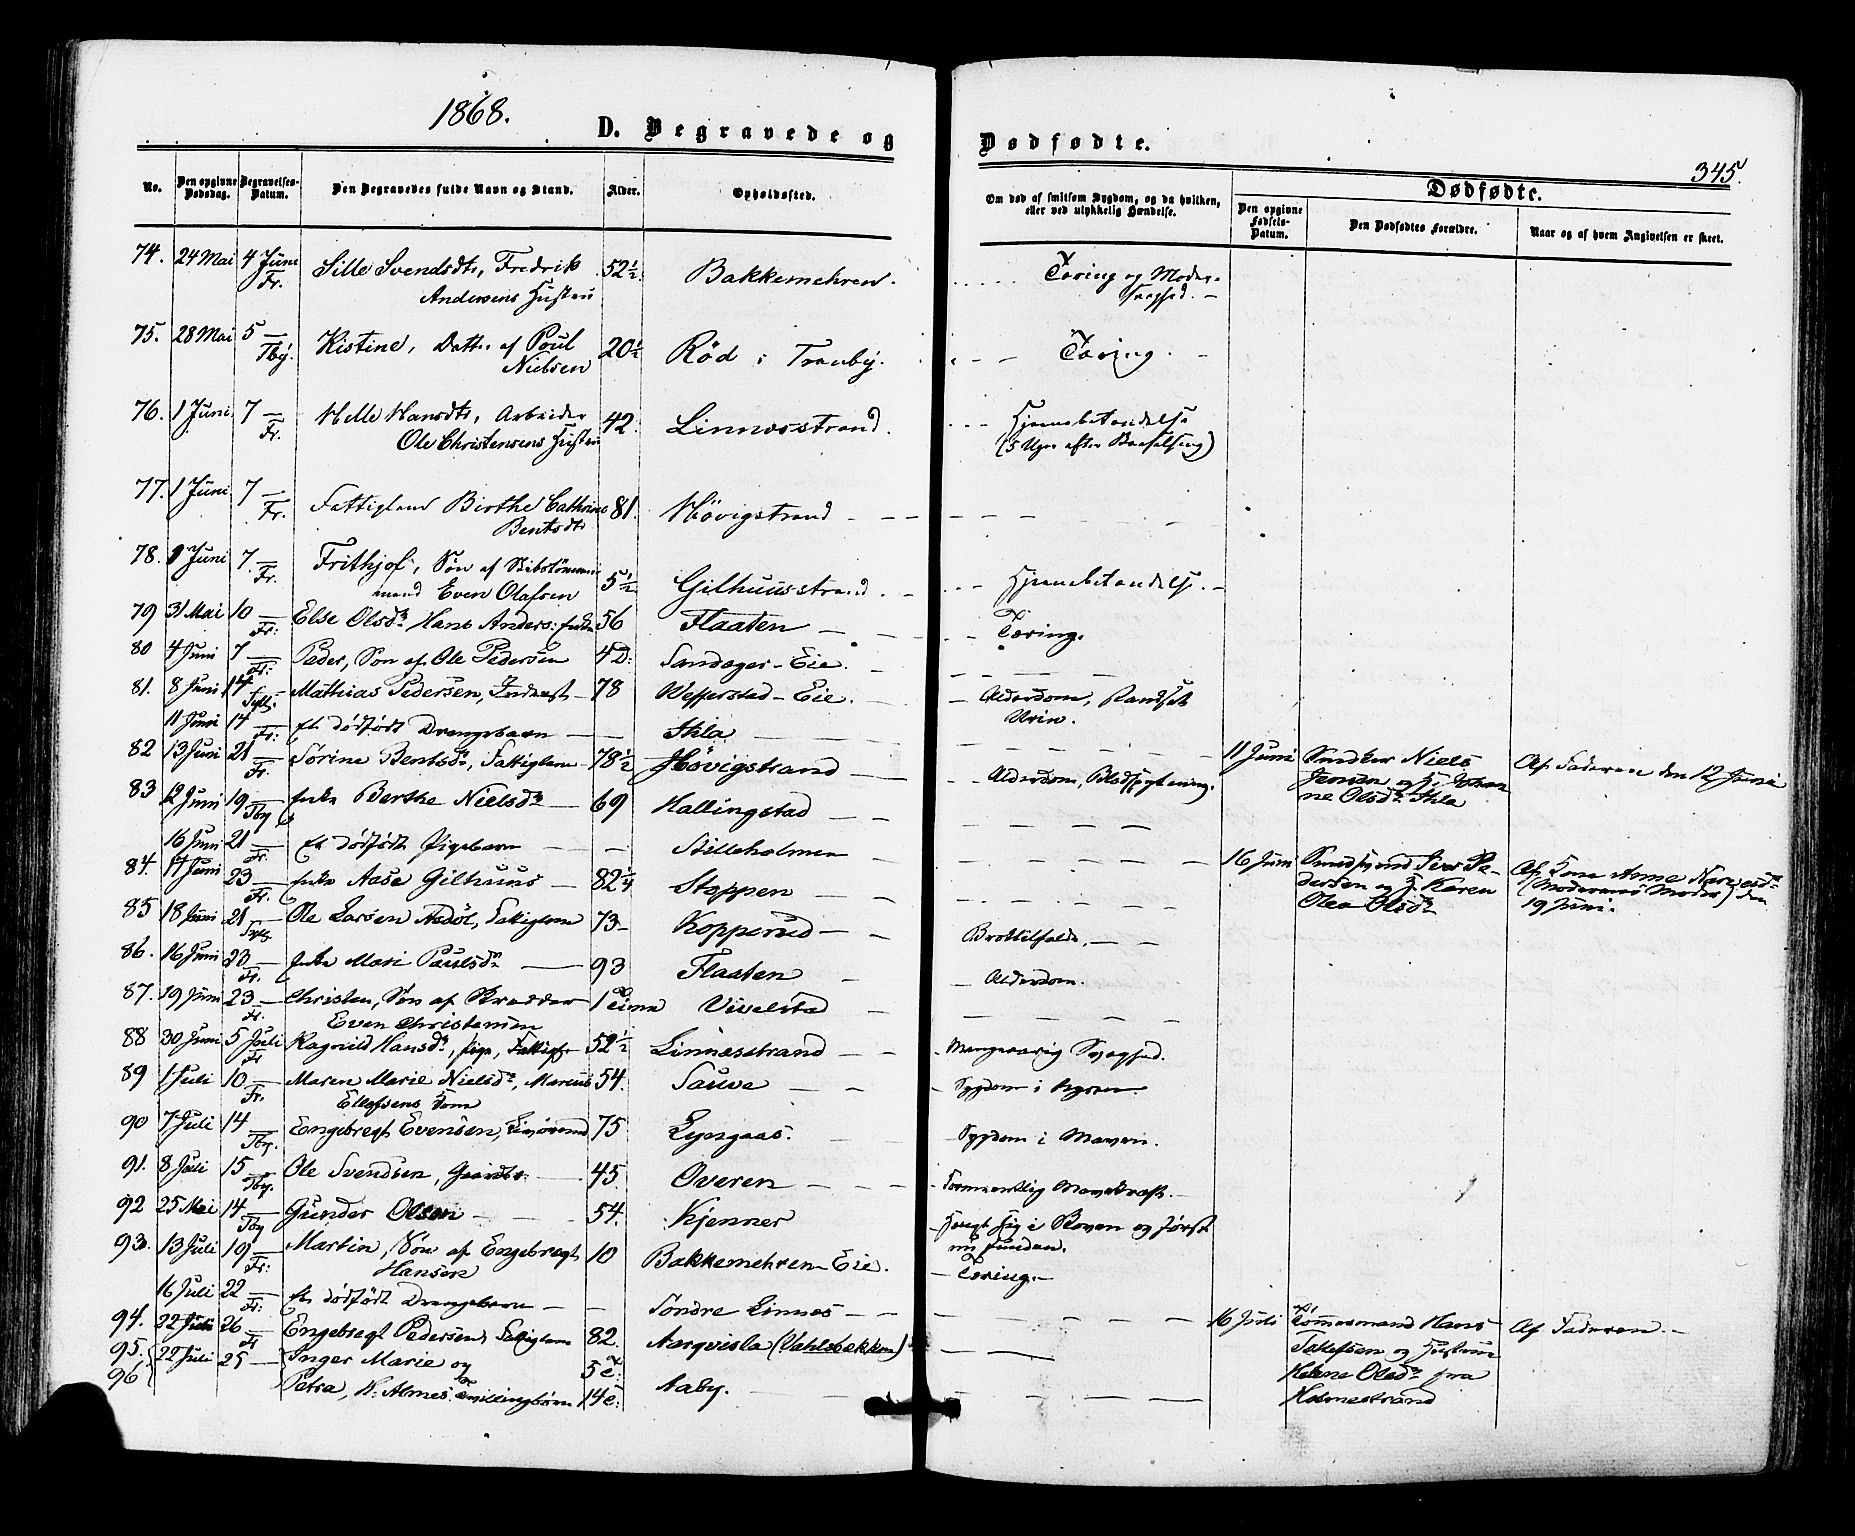 1868. D. Begravede og Dødfødte.
345.
No. Den opgivne Dødsdag. Begravelses-Datum. Den Begravedes fulde Navn og Stand. Alder. Opholdssted. Om død af smitsom Sygdom, og da hvilken, eller ved ulykkelig Hændelse. Dødfødte.
Den opgivne Fødsels-Datum. Den Dødfødtes Forældre. Naar og af hvem Angivelsen er skeet.
74. 24 Mai 4 Juni Fr. Sille Svendsdtr, Fredrik 52½ Bakkemehren. Tæring og Moder-
Andersens Hustru syghed. —
75. 28 Mai 5 — Tby. Kistine, Datter af Poul 20½ Rød i Tranby. Tæring. —
Nielsen
76. 1 Juni 7 — Fr. Helle Hansdtr, Arbeider 42. Linnæsstrand. Hjernebetændelse
Ole Christensens Hustru (5 Uger efter Barselseng)
77. 1 Juni 7 — Fr. Fattiglem Birthe Cathrine 81. Høvigstrand
Bentsdtr
78. 1 Juni 7. — Fr. Frithjof, Søn af Skibstømmer-
mand Even Olafsen 5½ Gilhuusstrand. Hjernebetændelse. —
79 31 Mai 10 — Fr: Else Olsdr Hans Anders: Enke 56 Flaaten — Tæring.
80 4 Juni 7 — Fr: Peder, Søn af Ole Pedersen 4 D: Sandager-Eie. —
81. 8 Juni 14 — Sylg. Mathias Pedersen, Inderst 78 Wefferstad-Eie. — Alderdom,
Urin.
11 Juni 14 — Fr: Et dødfødt Drengebarn — Ihla —
82 13 Juni 21 — Fr. Sørine Bentsdr, Fattiglem 78½ Høvigstrand — 11 Juni Smeder Niels Af Faderen den 12 Juni
83 12 Juni 19 — Tby Enke Berthe Nielsdr — 69 Hallingstad — Alderdom, Blodspytning. Jensen og H. Johan-
ne Olsdr Ihla
16 Juni 21 — Fr. Et dødfødt Pigebarn — Stilleholmen — 16 Juni
84. 17 Juni 23 — Fr. Enke Aase Gilhuus — 82¼ Stoppen — dersen og H. Karen (Moderens Moder) den
85 18 Juni 21 Sylg Ole Larsen Asdøl, Fattiglem 73 — Kopperud — Brottilfælde. — Olea Olsdr 19 Juni.
86. 16 Juni 23 — Fr. Enke Mari Paulsdr — 93 Flaaten — Alderdom.
87. 19 Juni 23 — Fr. Christen, Søn af Skrædder 1 Time Vivelstad —
Even Christensen
88 30 Juni 5 Juli Fr Ragnild Hansdr, Pige, Fattigl. 52½ Linnæsstrand — Mangeaarig Svaghed.
89 1 Juli 10 — Fr. Maren Marie Nielsdr, Marcus 54. Sauve — Sygdom i
Ellefsens Kone
90 7 Juli 14 — Tby. Engebregt Evensen, 75 Lyngaas. — Sygdom i Maven.
91. 8 Juli 15 — Tby. Ole Svendsen, Gaardbr. 45 Overen —
92 25 Mai 14 — Tby Gunder Olsen — 54. Kjenner — Hængt sig i Skoven og først
93. 13 Juli 19 — Fr: Martin, Søn af Engebregt 10 Bakkemehren-Eie. nu funden.
Hansen — Tæring. —
16 Juli 22 — Fr: Et dødfødt Drengebarn — Søndre Linnes — 16 Juli Tømmermand Hans Af Faderen. —
94. 22 Juli 26 — Fr Engebregt Pedersen, Fattiglem 82. Aarqvisla (Vahlsbækken) Tollefsen og Hustrue
95. 22 Juli 25 — Inger Marie og 5 T: Helene Olsdr fra
96 Petra, K. Almes Tvillingbørn 14 T: Aaby. — Holmestrand